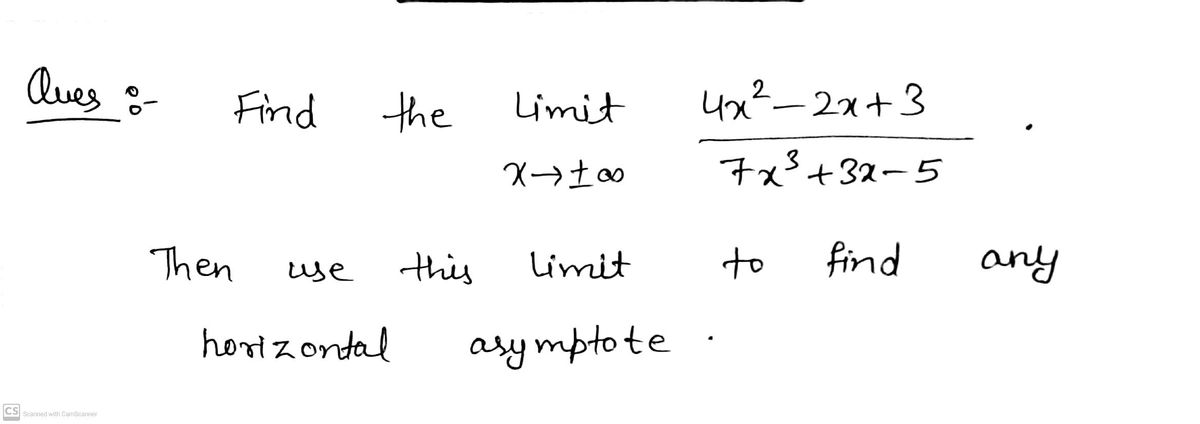 Ques :- Find the Limit 4x² - 2x + 3 / 7x³ + 3x - 5 .
x → ± ∞
Then use this limit to find any
horizontal asymptote .
CS Scanned with CamScanner